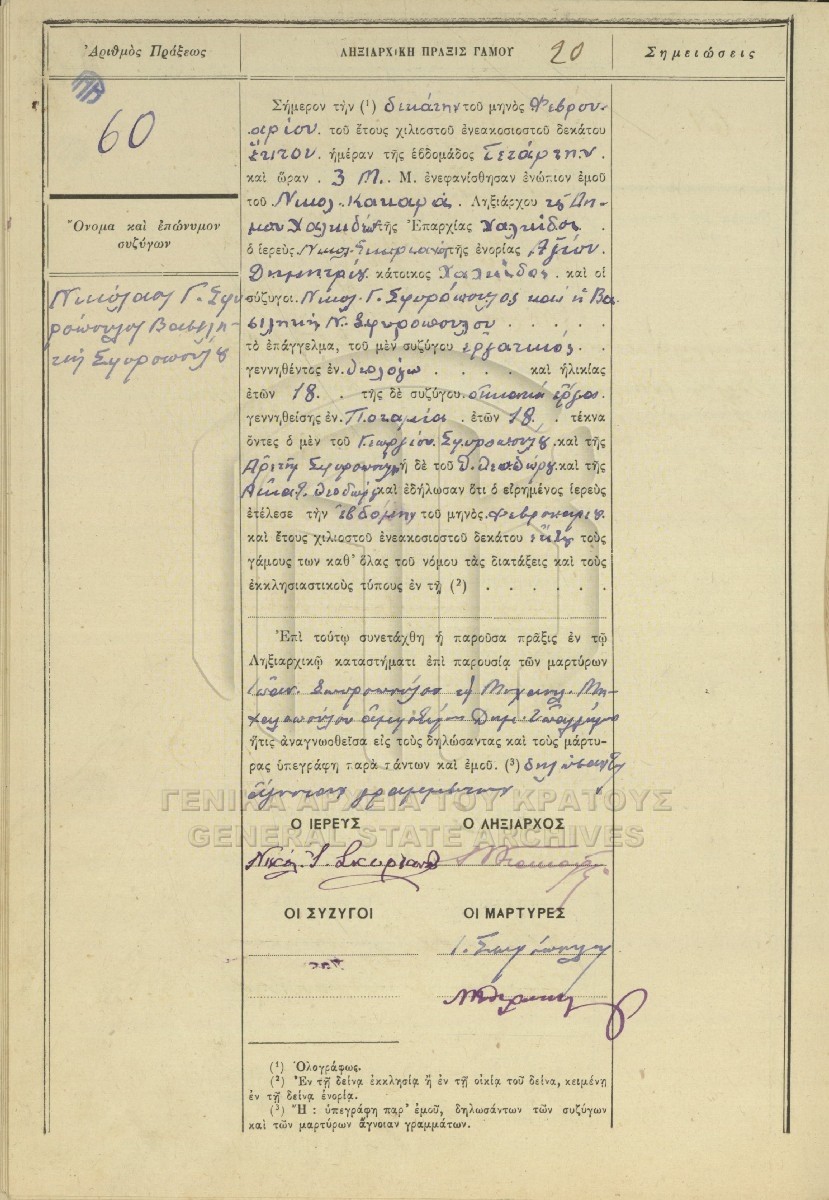 Ἀριθμὸς Πράξεως
ΛΗΞΙΑΡΧΙΚΗ ΠΡΑΞΙΣ ΓΑΜΟΥ 20
Σημειώσεις
60
Ὄνομα καὶ ἐπώνυμον
συζύγων
Νικόλαος Γ. Σφυ
ρόπουλος Βασιλη-
κὴ Σφυροπούλου
Σήμερον τὴν (¹) δεκάτην τοῦ μηνὸς Φεβρου-
αρίου. τοῦ ἔτους χιλιοστοῦ ἐνεακοσιοστοῦ δεκάτου
ἕκτου. ἡμέραν τῆς ἑβδομάδος Τετάρτην.
καὶ ὥραν. 3 Μ. Μ. ἐνεφανίσθησαν ἐνώπιον ἐμοῦ
τοῦ Νικολ. Κακαρᾶ. Ληξιάρχου τοῦ Δή-
μου Χαλκιδέων τῆς Ἐπαρχίας Χαλκίδος.
ὁ ἱερεὺς Νικολ. τῆς ἐνορίας Ἁγίου
Δημητρίου κάτοικος Χαλκίδος. καὶ οἱ
σύζυγοι. Νικολ. Γ. Σφυρόπουλος καὶ ἡ Βα-
σιληκὴ Ν. Σφυροπούλου . . . . .
τὸ ἐπάγγελμα, τοῦ μὲν συζύγου ἐργατικός. .
γεννηθέντος ἐν. . . . . καὶ ἡλικίας
ἐτῶν 18. . τῆς δὲ συζύγου. οἰκιακὰ ἔργα.
γεννηθείσης ἐν. Ποταμιά. ἐτῶν 18. , τέκνα
ὄντες ὁ μὲν τοῦ Γεωργίου. Σφυροπούλου. καὶ τῆς
Ἀρετῆς Σφυροπούλου ἡ δὲ τοῦ Θ. Θεοδώρου. καὶ τῆς
Αἰκατ. Θεοδώρου καὶ ἐδήλωσαν ὅτι ὁ εἰρημένος ἱερεὺς
ἐτέλεσε τὴν ἑβδόμην τοῦ μηνὸς. Φεβρουαρίου.
καὶ ἔτους χιλιοστοῦ ἐνεακοσιοστοῦ δεκάτου ἕκτου τοὺς
γάμους των καθ' ὅλας τοῦ νόμου τὰς διατάξεις καὶ τοὺς
ἐκκλησιαστικοὺς τύπους ἐν τῇ (²) . . . . . .
Ἐπὶ τούτῳ συνετάχθη ἡ παροῦσα πρᾶξις ἐν τῷ
Ληξιαρχικῷ καταστήματι ἐπὶ παρουσίᾳ τῶν μαρτύρων
Ἰωάν. Μιχαὴλ. Μι-
χαλοπούλου ἀμφοτέρων Δημ.
ἥτις ἀναγνωσθεῖσα εἰς τοὺς δηλώσαντας καὶ τοὺς μάρτυ-
ρας ὑπεγράφη παρὰ πάντων καὶ ἐμοῦ. (³) δηλωσάντων
ἄγνοιαν γραμμάτων
ΓΕΝΙΚΑ ΑΡΧΕΙΑ ΤΟΥ ΚΡΑΤΟΥΣ
GENERAL STATE ARCHIVES
Ο ΙΕΡΕΥΣ
Ο ΛΗΞΙΑΡΧΟΣ
Νικόλ.
ΟΙ ΣΥΖΥΓΟΙ
ΟΙ ΜΑΡΤΥΡΕΣ
(¹) Ὁλογράφως.
(²) Ἐν τῇ δεῖνᾳ ἐκκλησίᾳ ἢ ἐν τῇ οἰκίᾳ τοῦ δεῖνα, κειμένῃ
ἐν τῇ δεῖνᾳ ἐνορίᾳ.
(³) Ἢ : ὑπεγράφη παρ' ἐμοῦ, δηλωσάντων τῶν συζύγων
καὶ τῶν μαρτύρων ἄγνοιαν γραμμάτων.